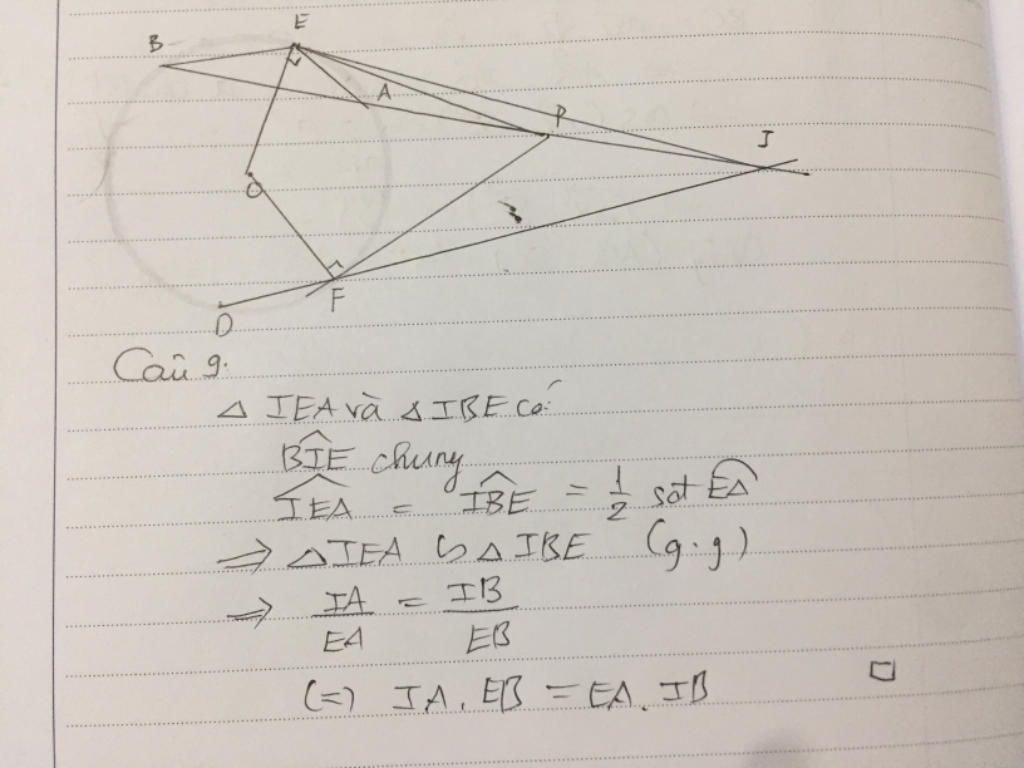 B
E
A
P
I
O
F
D
Câu 9.
△ IEA và △ IBE có:
BÎE chung
IEA = IBE = 1/2 sđt EA
⇒ △ IEA ∽ △ IBE (g.g)
⇒ IA/EA = IB/EB
(=) IA . EB = EA . IB □